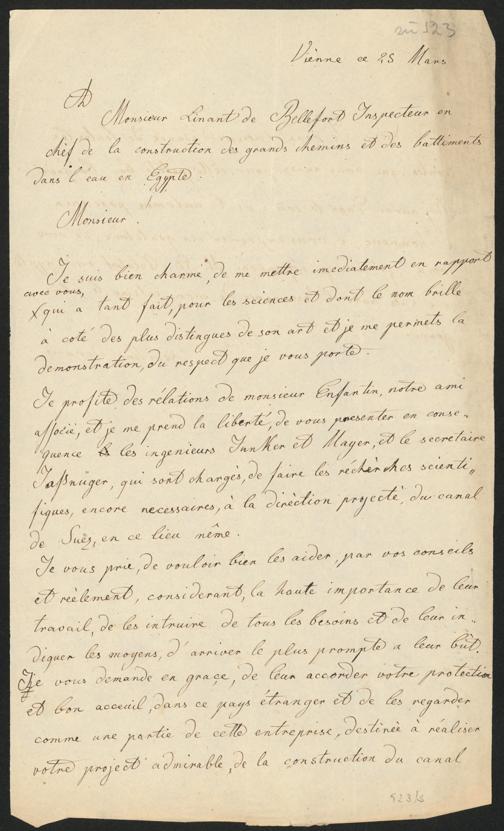 zu 523
Vienne ce 25 Mars
A
Monsieur Linant de Bellefort Inspecteur en
chéf de la construction des grands chemins et des battiments
dans l'eau en Egypte.
Monsieur.
Je suis bien charmé, de me mettre imediatement en rapport
avec vous,
qui a tant fait, pour les sciences et dont le nom brille
à coté des plus distingues de son art et je me permets la
demonstration, du respect que je vous porte.
Je profite des rélations de monsieur Enfantin, notre ami
associé, et je me prend la liberté, de vous presenter en conse-
quence les ingenieurs Junker et Mayer, et le secretaire
Jafsnüger, qui sont chargés, de faire les réchèrches scienti-
fiques, encore necessaires, à la diréction projecté, du canal
de Suès, en ce lieu même.
Je vous prie, de vouloir bien les aider, par vos conseils
et réelement, considerant, la haute importance de leur
travail, de les intruire de tous les besoins et de leur in-
diquer les moyens, d'arriver le plus prompte a leur bût.
Je vous demande en graçe, de leur accorder votre protection
et bon acceuil, dans ce pays étranger et de les regarder
comme une partie de cette entreprise, destinée à réaliser
votre project admirable, de la construction du canal
523/3